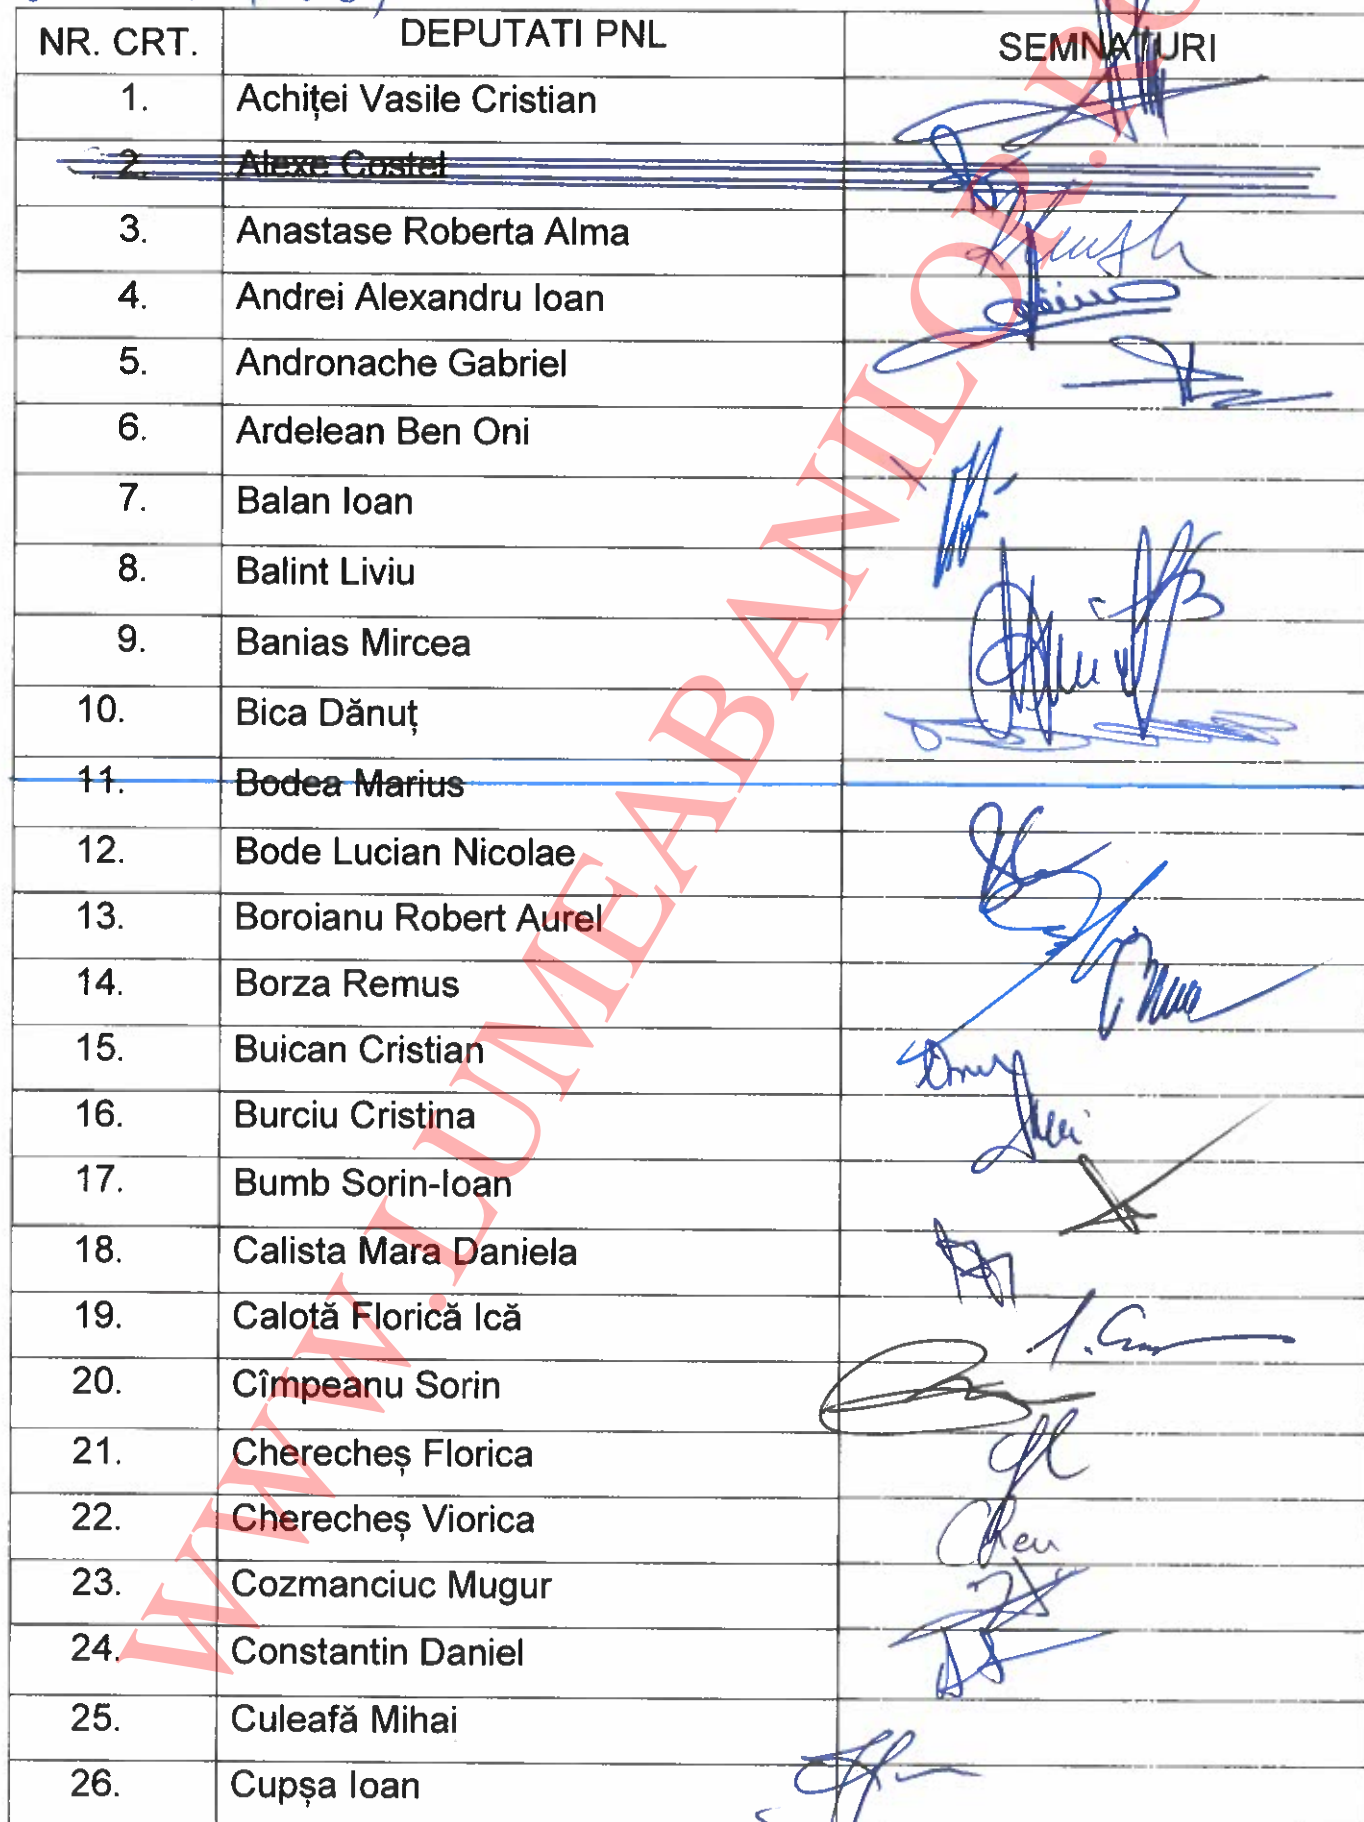 NR. CRT. DEPUTATI PNL SEMNATURI
1. Achiței Vasile Cristian
2. Alexe Costel
3. Anastase Roberta Alma
4. Andrei Alexandru Ioan
5. Andronache Gabriel
6. Ardelean Ben Oni
7. Balan Ioan
8. Balint Liviu
9. Banias Mircea
10. Bica Dănuț
11. Bodea Marius
12. Bode Lucian Nicolae
13. Boroianu Robert Aurel
14. Borza Remus
15. Buican Cristian
16. Burciu Cristina
17. Bumb Sorin-Ioan
18. Calista Mara Daniela
19. Calotă Florică Ică
20. Cîmpeanu Sorin
21. Cherecheș Florica
22. Cherecheș Viorica
23. Cozmanciuc Mugur
24. Constantin Daniel
25. Culeafă Mihai
26. Cupșa Ioan
WWW.LUMEABANILOR.RO